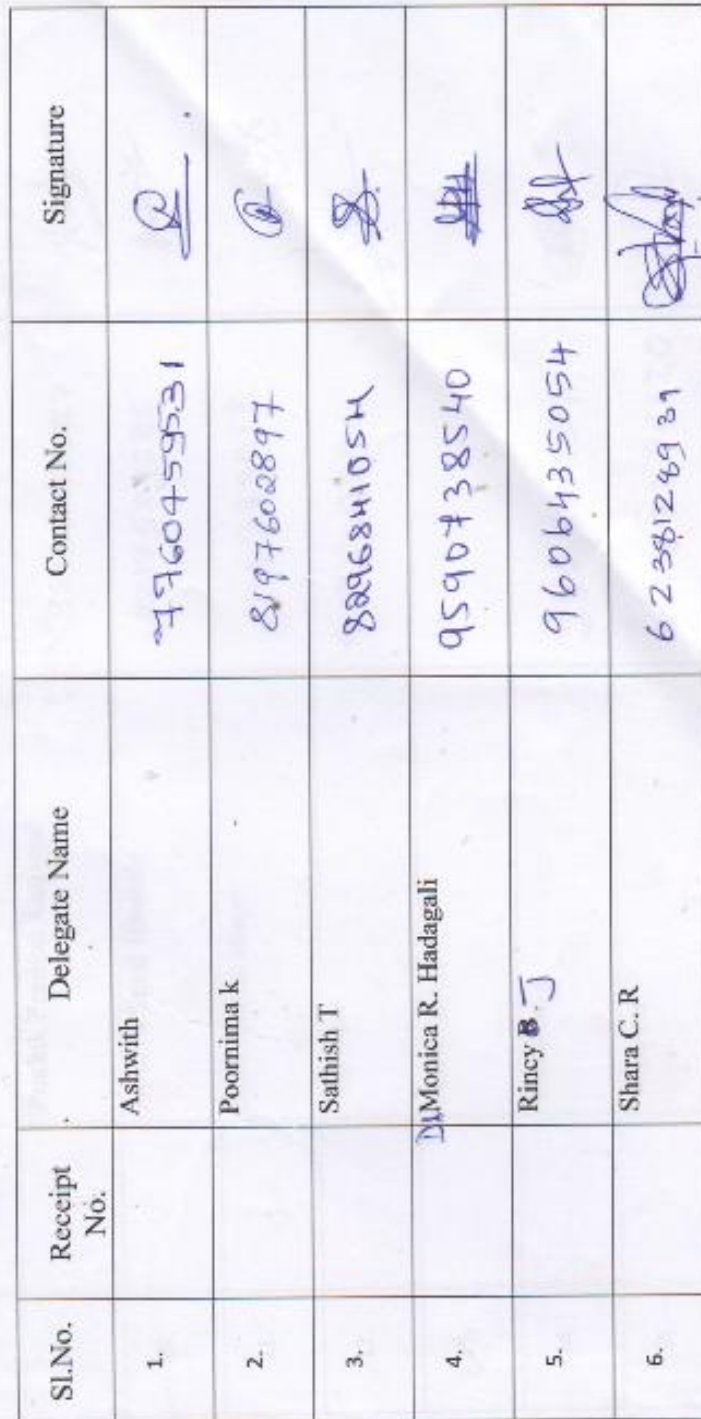 Sl.No. Receipt No. Delegate Name Contact No. Signature
1. Ashwith 7760459531
2. Poornima k 8197602897
3. Sathish T 8296841054
4. Dr Monica R. Hadagali 9590738540
5. Rincy B. J 9606435054
6. Shara C. R